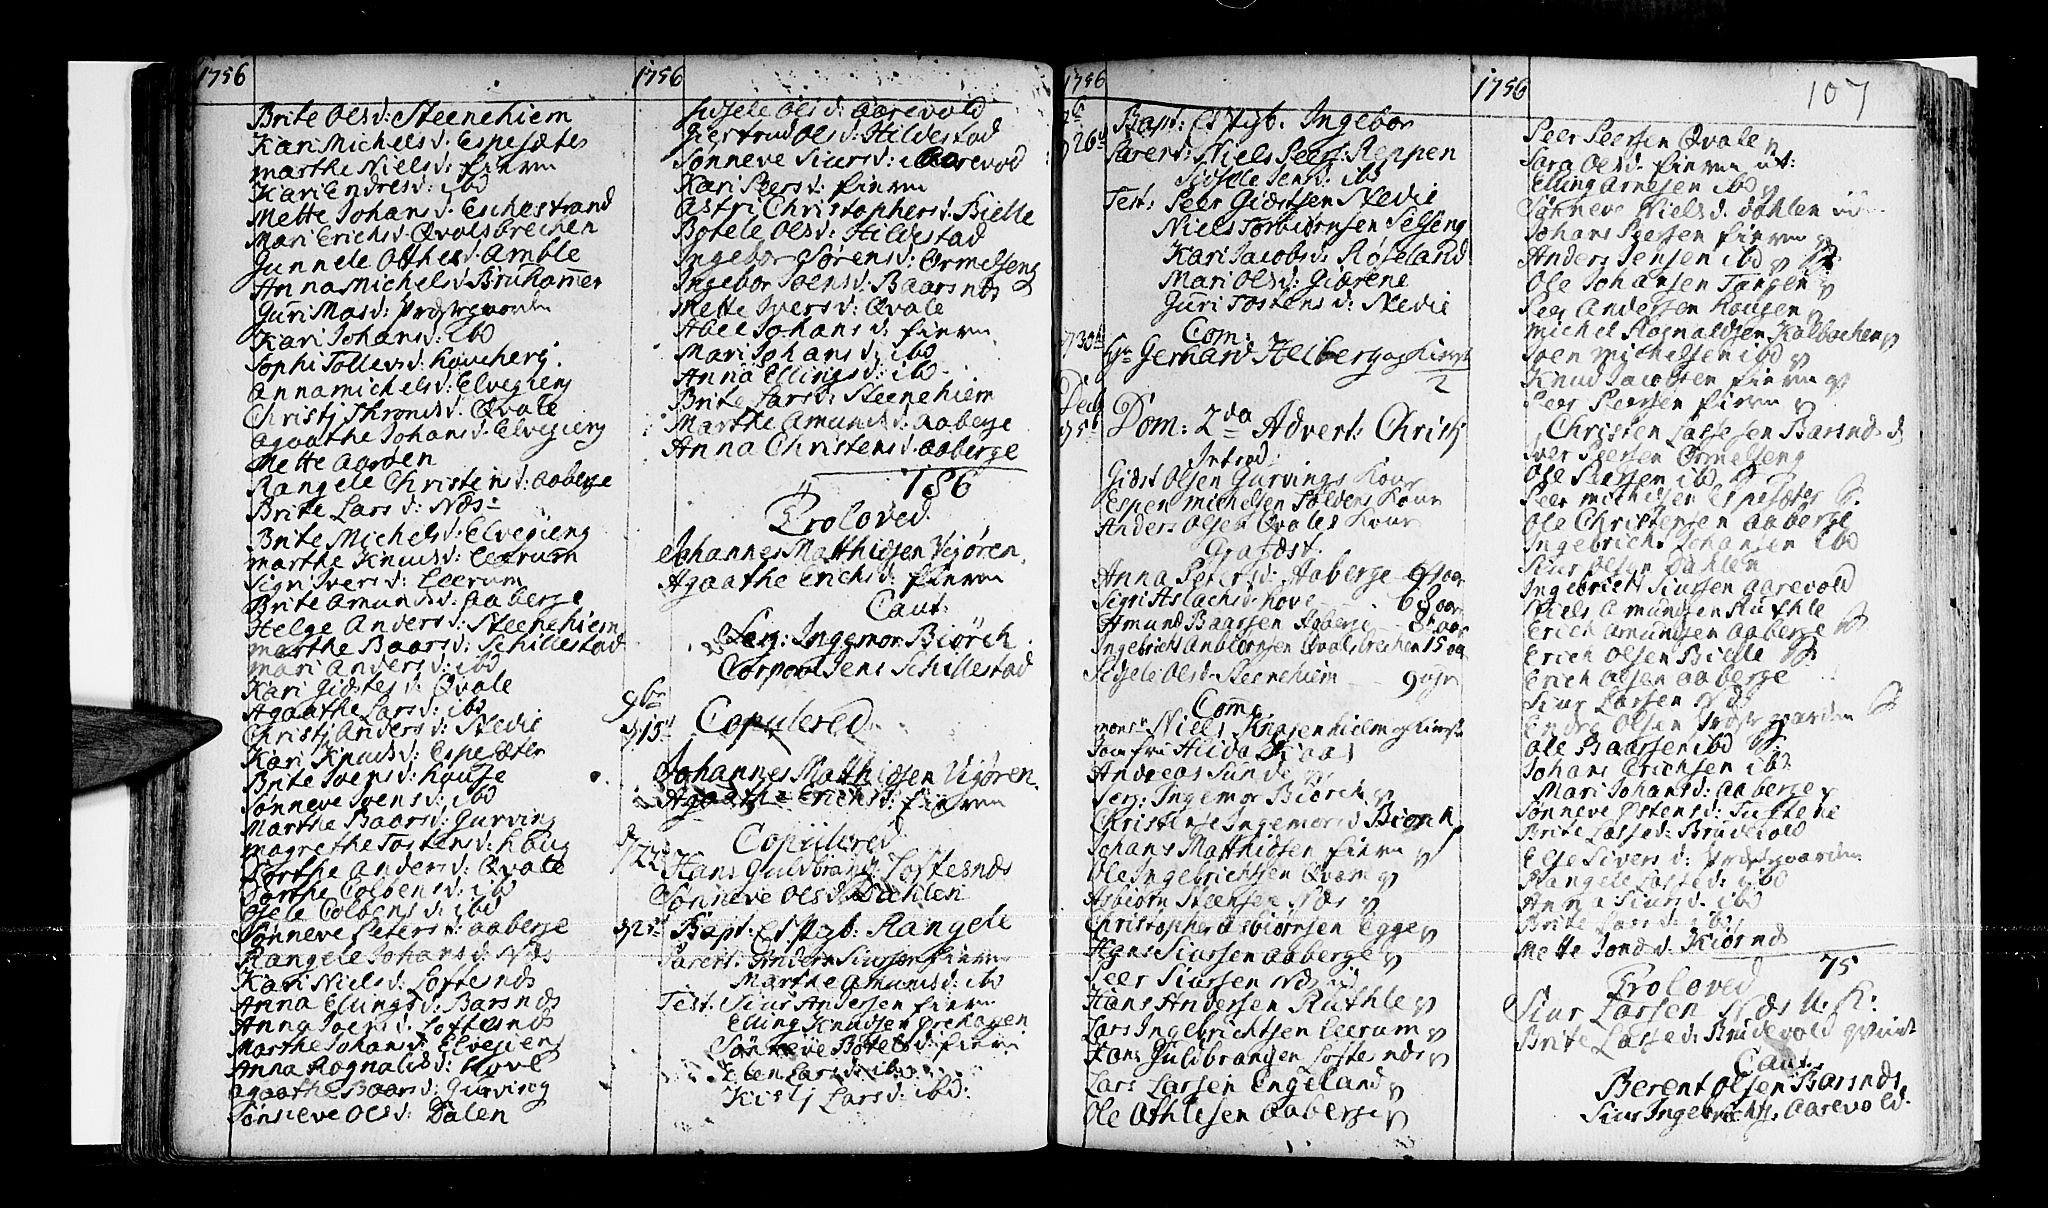 1756
Brite Olsd: Steenehiem
Kari Michelsd: Espesætes
marthe Nielsd: fierm
Kari Endresd: ibd
Mette Johansd: Eschestrand
Mari Erichsd: Qvalsbrechen
Gunnele Othesd: Amble
Anna Michelsd: Bruhammer
Guri Masd: Præstegaarden
Kari Johansd: ibd
Sophi Tollevsd:
Anna michelsd: Elvegierg
Christj Thronsd: Qvale
agaathe Johansd: Elvegierg
Mette Aarøen
Rangele Christensd: aaberge
Brite Larsd: Næs
Brite Michelsd: Elvegieng
marthe Knudsd: Leerum
Sigri Iversd: Leerum
Brite amunsd: aaberge
Helge Andersd: Steenehiem
marthe Baarsd: Schillestad
mari andersd: ibd
Kari Giøstesd: Qvale
Agaathe Larsd: ibd
Christj Andersd: Stedie
Kari Knudsd: Espesæter
Brite Joensd: Houge
Sønneve Joensd: ibd
Marthe Baarsd: Gurving
magrethe Tostensd: Houg
Dorthe Andersd: Qvale
Dorthe Colbensd: ibd
Osele Colbensd: ibd
Sønneve Petersd: aaberge
Rangele Johansd: Næs
Kari Nielsd: Loftesnæs
Anna Ellingsd: Barsnæs
Anna Joensd: Loftesnæs
Marthe Johansd: Elvegieng
Anna Rognalsd: Hove
agaathe Baarsd: Gurving
Sønneve Olsd: Dalen
1756
Sidsele Olsd: Aarevold
Giertrud Olsd: Hildestad
Sønneve Siursd: Aarevod
Kari Peersd: fierm
Astri Christophersd: Bielle
Botele Olsd: Hildestad
Ingebor Sørensd: Ormelseng
Ingebor Joensd: Baarsnæs
Mette Iversd: Qvale
Abel Johansd: fierm
Mari Johansd: ibd
Anna Ellingsd: ibd
Brite Larsd: Steenehiem
Marthe Amunsd: aaberge
Anna Christensd: aaberge
186
Troloved
Johannes Matthiesen Vigøren
Agaathe Erichsd: fierm
Caut:
Serj: Ingemor Biørch
Corporal Jens Schillestad
9br
d/15d Copulered
Johannes Matthiesen Vigøren
Agaathe Erichsd: fierm
Copulered
d/22 Hans Guldbrands: Loftesnæs
Sønneve Olsd: Dahlen
d/25d Bapt: Estg: Rangele
Parent: Anders Siursen fierm
Marthe Amunsd: ibd
Test: Siur Andersen fierm
Elling Knudsen
Sønneve Botelsd: fierm
Elen Larsd: ibd
Kistj Larsd: ibd:
1756
d 26d Bapt: Ingebor
Parent: Niels Peers: Reppen
Sidsele Jensd: ibd
Test: Peer Giøstsen Stedie
Niels Torbiørnsen Selseng
Kari Jacobsd: Røseland
Mari Olsd: Giørene
Guri Tostensd: Stedie
Com:
d/30te Hr Gerhard Heiberg og Kiærste
2
Decb
d/5te Dom: 2da Advent: Christj
Introd:
Giøst Olsen Gurvings Kone
Espen michelsen Kone
Anders Olsen Qvales Kone
Grafæst:
Anna Petersd: Aaberge
Sigri Aslachsd: Hove 68 aar
Amund Baarsen Aaberge
Ingebricht Anbiørnsen Qvalsbrechen 15 aar
Sidsele Olsd: Steenehiem 9 uger
Com:
monsr Niels Knagenhielm og Kiærste
Jomfru Hilda Kaas
Andreas Sunde
Serj: Ingemor Biørch
Christense Ingemorsd Biørch
Johans Matthiesen fierm
Ole Ingebrichtsen Qvam
Asbiørn Steensen Næs
Christopher Asbiørnsen Egge
Hans Siursen aaberge
Peer Siursen Næs
Hans Andersen Ruthle
Lars Ingebrichtsen Leerum
Hans Guldbrangen Loftesnæs
Lars Larsen Engeland
Ole Othlesen aaberge
1756
107
Peer Peersen Qvale
Sara Olsd: fierm
Elling Arnesen ibd
Sønneve Nielsd: Dahlen
Johans Peersen fierm
Anders Jensen ibd
Ole Johansen Tangen
Peer Andersen Hougen
Michel Rognaldsen Kalbachen
Joen michelsen ibd
Knud Jacobsen fierm
Peer Peersen fierm
Christen Lassesen Barsnæs
Iver Peersen Ormelseng
Ole Peersen ibd
Peer michelsen Espesæter
Ole Christensen aaberge
Ingebricht Johansen ibd
Siur Olsen Dahlen
Ingebricht Siursen aarevold
Niels Amundsen Ruthle
Erich Amundsen aaberge
Erich Olsen Bielle
Erich Olsen aaberge
Siur Larsen Næs
Endre Olsen Præstgaarden
Ole Baarsen ibd
Johans Erichsen ibd
Mari Johansd: aaberge
Sønneve Østensd: Tuftene
Brite Lassed: Brudevold
Else Siversd: Præstgaarden
Rangele Lassed: ibd
Anna Siursd: ibd
Brite Larsd: ibd
Mette Jonsd: Kiørnæs
75
Troloved
Siur Larsen Næs U: K:
Brite Lassed: Brudevold
Caut:
Berent Olsen Barsnæs
Siur Ingebrichts: Aarevold